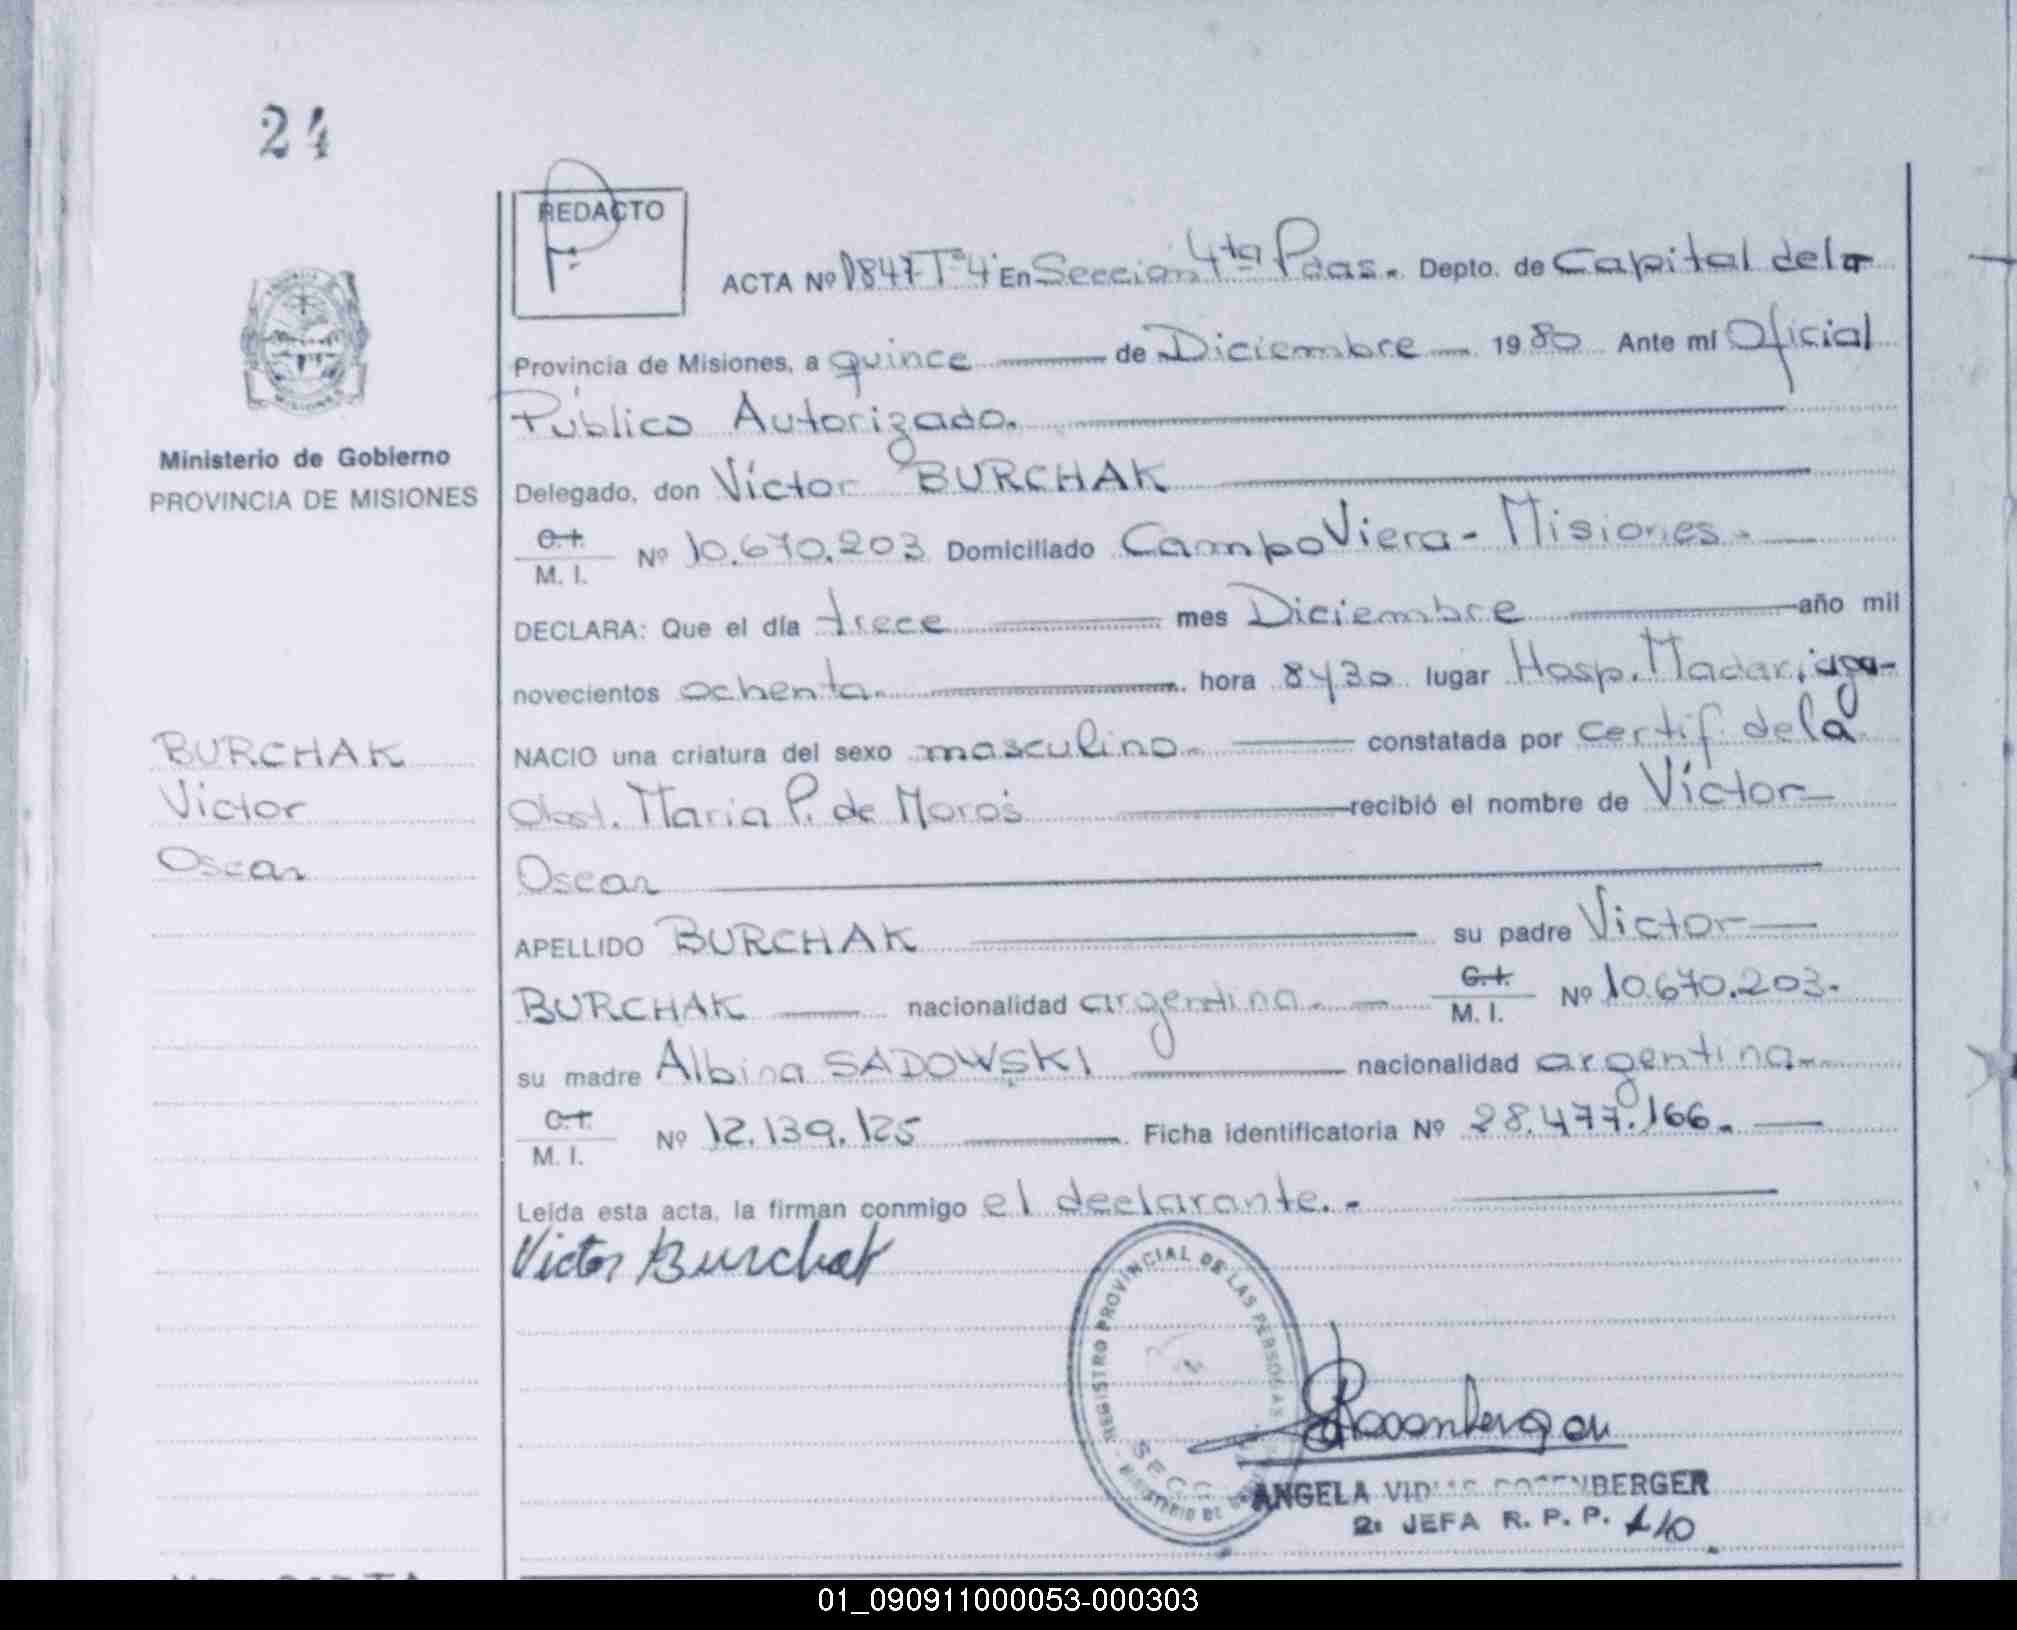 24
REDACTO
ACTA Nº 1847-Tº4º En Sección 4ta Pdas. Depto. de Capital de la
Provincia de Misiones, a quince de Diciembre 1980 Ante mí Oficial
Público Autorizado.
Ministerio de Gobierno
PROVINCIA DE MISIONES
Delegado, don Víctor BURCHAK
C.I.
M. I. Nº 10.670.203 Domiciliado Campo Viera - Misiones -
DECLARA: Que el día trece mes Diciembre año mil
novecientos ochenta. hora 8 y 30 lugar Hosp. Madariaga-
BURCHAK
Víctor
Oscar
NACIO una criatura del sexo masculino. constatada por certif. de la
Obst. Maria P. de Moros recibió el nombre de Víctor
Oscar
APELLIDO BURCHAK su padre Victor
BURCHAK nacionalidad argentina. C.I.
M. I. Nº 10.670.203.
su madre Albina SADOWSKI nacionalidad argentina.
C.I.
M. I. Nº 12.139.125 Ficha identificatoria Nº 28.477.166.
Leída esta acta, la firman conmigo el declarante. -
Victor Burchak
REGISTRO PROVINCIAL DE LAS PERSONAS
SECC
MINISTERIO DE
ANGELA ROSENBERGER
2: JEFA R. P. P.
01_090911000053-000303